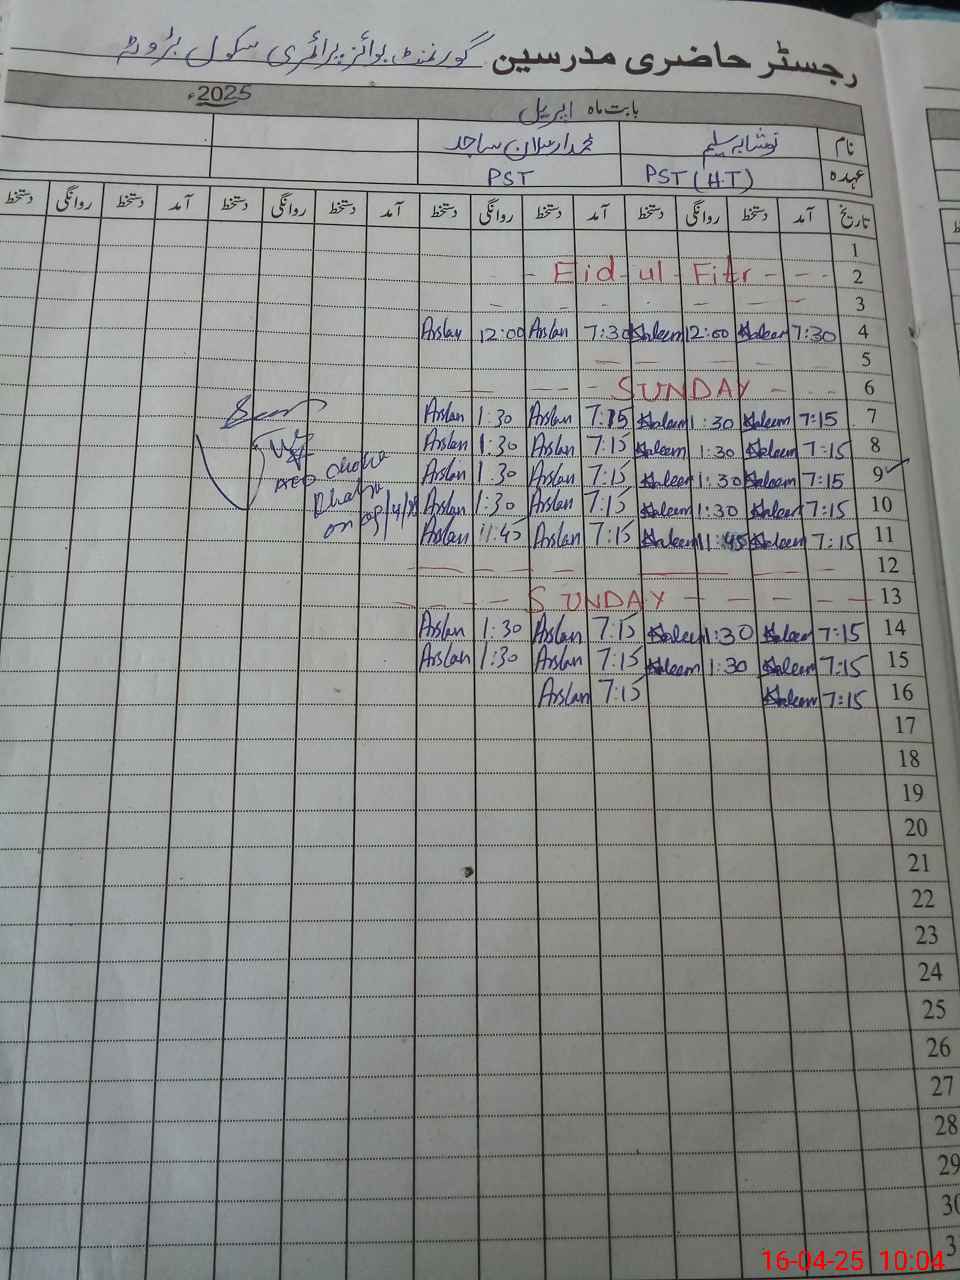 رجسٹر حاضری مدرسین گورنمنٹ بوائز پرائمری سکول
بابت ماہ اپریل 2025ء
نام نوشابہ سلیم محمد ارسلان ساجد
عہدہ PST (H.T) PST
تاریخ آمد دستخط روانگی دستخط آمد دستخط روانگی دستخط آمد دستخط روانگی دستخط دستخط روانگی دستخط
1
2 Eid-ul-Fitr
3
4 7:30 Kaleem 12:00 Kaleem 7:30 Arslan 12:00 Arslan
5
6 SUNDAY
7 7:15 Kaleem 1:30 Kaleem 7:15 Arslan 1:30 Arslan
8 7:15 Kaleem 1:30 Kaleem 7:15 Arslan 1:30 Arslan
9 7:15 Kaleem 1:30 Kaleem 7:15 Arslan 1:30 Arslan
10 7:15 Kaleem 1:30 Kaleem 7:15 Arslan 1:30 Arslan
11 7:15 Kaleem 11:45 Kaleem 7:15 Arslan 11:45 Arslan
12
13 SUNDAY
14 7:15 Kaleem 1:30 Kaleem 7:15 Arslan 1:30 Arslan
15 7:15 Kaleem 1:30 Kaleem 7:15 Arslan 1:30 Arslan
16 7:15 Kaleem 7:15 Arslan
17
18
19
20
21
22
23
24
25
26
27
28
29
30
3
16-04-25 10:04